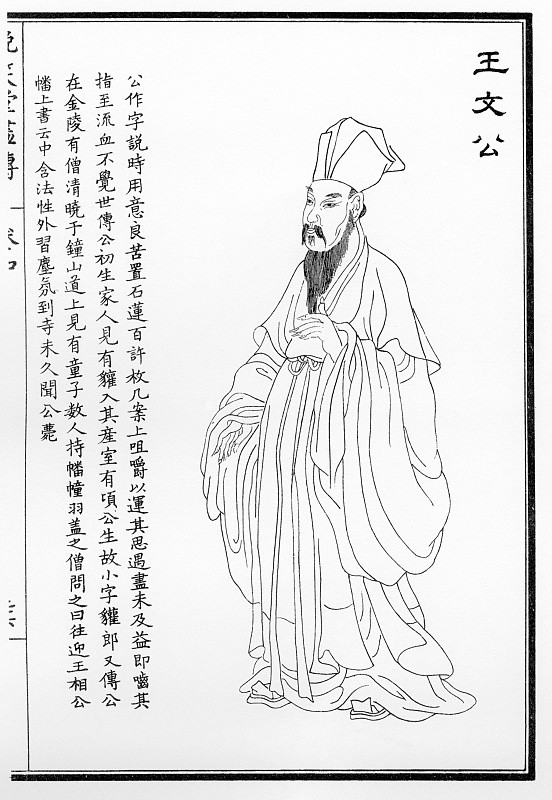 王文公
公作字説時用意良苦置石蓮百許枚几案上咀嚼以運其思遇盡未及益即嚙其
指至流血不覺世傳公初生家人見有貛入其產室有頃公生故小字貛郎又傳公
在金陵有僧清曉于鐘山道上見有童子数人持幡幢羽盖之僧問之曰往迎王相公
幡上書云中含法性外習塵氛到寺未久聞公薨